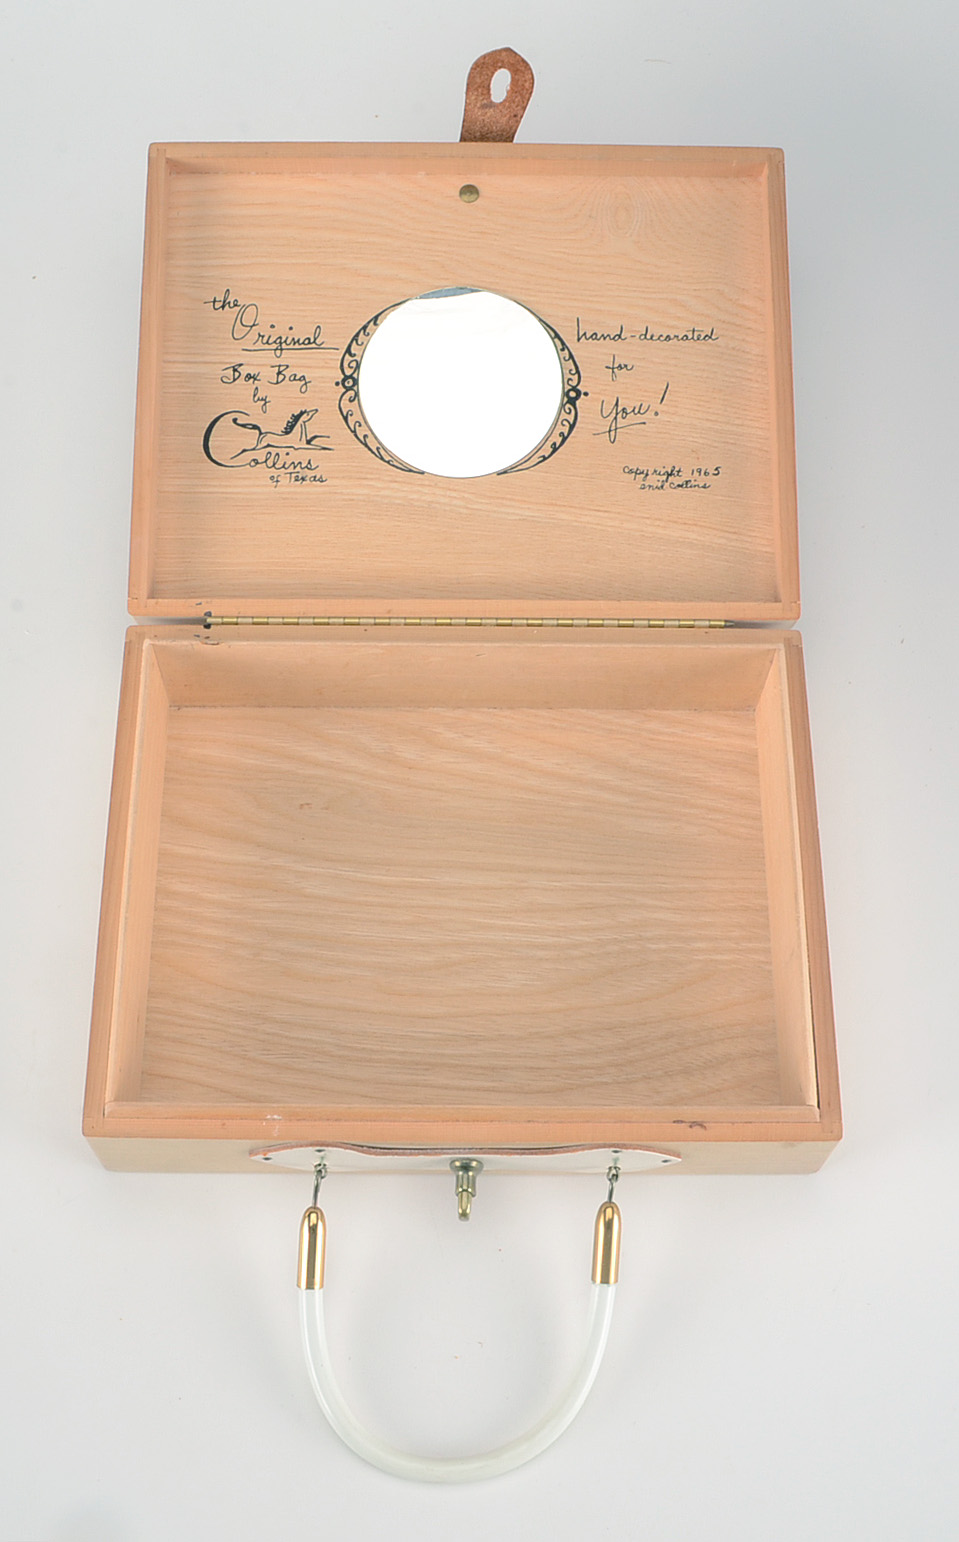 the
Original
Box Bag
by
Collins
of Texas
hand-decorated
for
You!
copyright 1965
enid collins